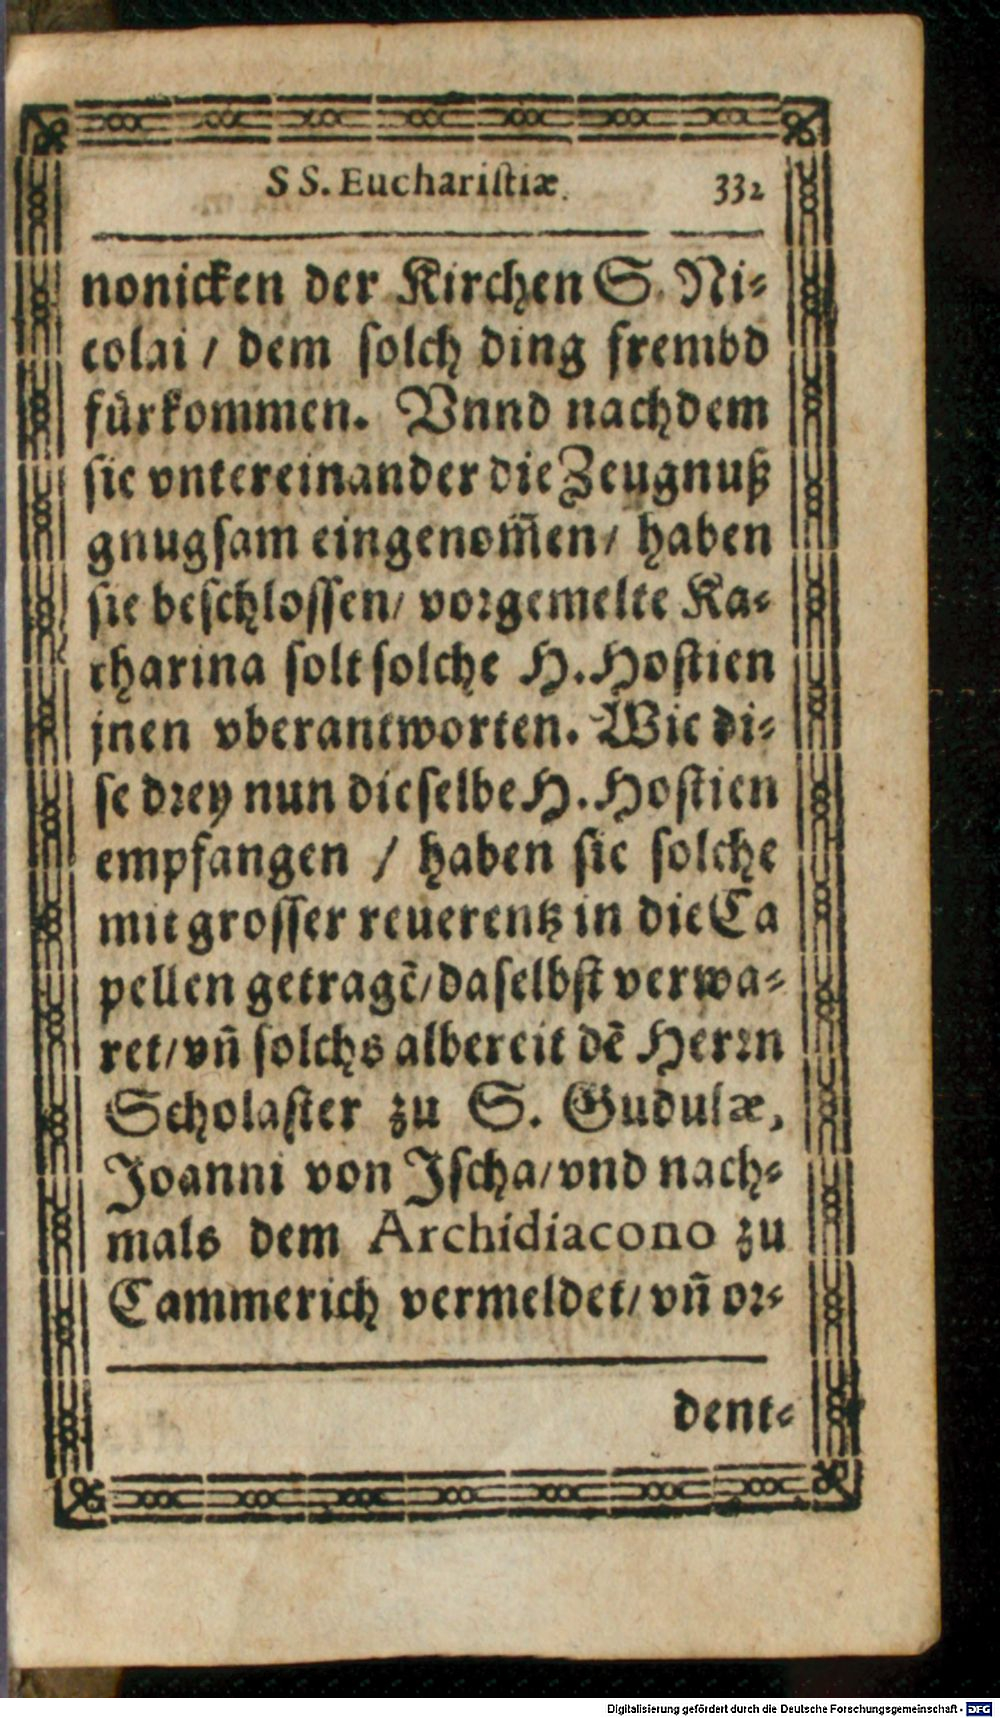 SS. Euchariſtiæ. 332
nonicken der Kirchen S. Ni-
colai / dem ſolch ding frembd
fürkommen. Vnnd nachdem
ſie vntereinander die Zeugnuß
gnugſam eingenom̃en / haben
ſie beſchloſſen / vorgemelte Ka-
tharina ſolt ſolche H. Hoſtien
jnen vberantworten. Wie di-
ſe drey nun dieſelbe H. Hoſtien
empfangen / haben ſie ſolche
mit groſſer reuerentz in die Ca
pellen getragẽ / daſelbſt verwa-
ret / vñ ſolchs albereit dẽ Herꝛn
Scholaſter zu S. Gudulæ,
Joanni von Jſcha / vnd nach-
mals dem Archidiacono zu
Cammerich vermeldet / vñ or-
dent-
Digitalisierung gefördert durch die Deutsche Forschungsgemeinschaft - DFG